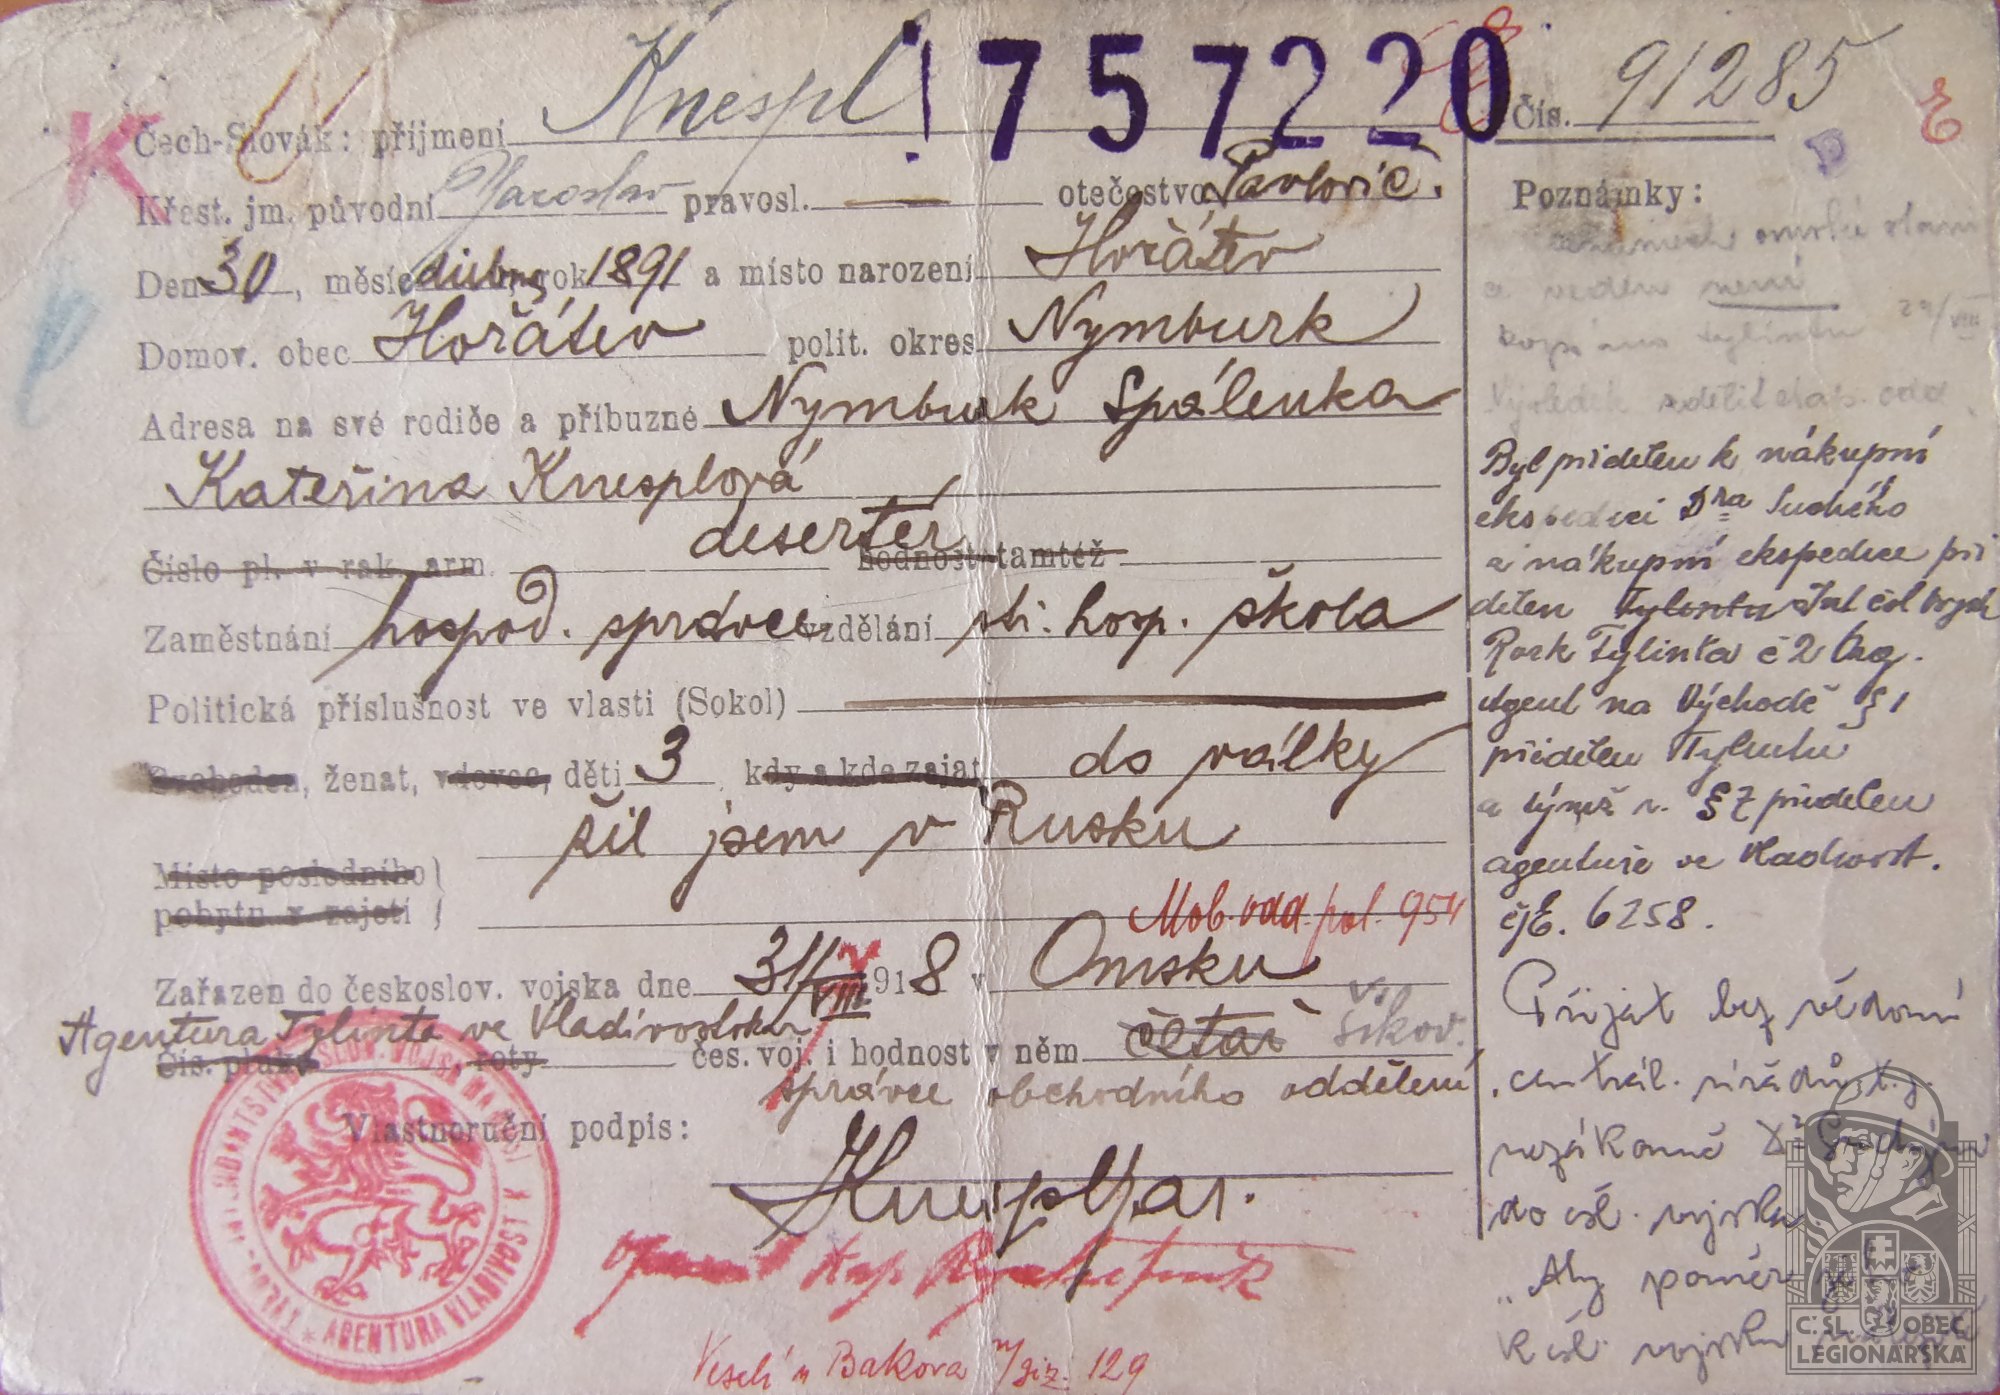 K
Čech-Slovák: příjmení Knespl 1757220 Čís. 91285
Křest. jm. původní Yaroslav pravosl. — otečestvo Pavlovič.
Poznámky:
Den 30, měsíc dubna rok 1891 a místo narození Hořátev
Domov. obec Hořátev polit. okres Nymburk
Adresa na své rodiče a příbuzné Nymburk Spálenka
Kateřina Knesplová
Číslo pl. v rak. arm. desertér hodnost tamtéž
Zaměstnání hospod. správce vzdělání stř. hosp. škola
Politická příslušnost ve vlasti (Sokol)
Svoboden, ženat, vdovec, děti 3, kdy a kde zajat do války
žil jsem v Rusku
Místo posledního
pobytu v zajetí
Mob. odd. pol. 954
Zařazen do českoslov. vojska dne 31/VIII 1918 v Omsku
Agentura Tylinta ve Vladivostoku
Čís. pluku roty čes. voj. i hodnost v něm četař šikov.
správce obchodního oddělení
Vlastnoruční podpis:
Knespl Jar.
není
29/VIII
Byl přidělen k nákupní
expedici Dra Suchého
a nákupní ekspedice při
dělen Tylintu
Rozk Tylinta č 2
Agent na Východě § 1
přidělen Tylintu
a týmž r. § 7 přidělen
agentuře ve Vladivost.
čj. E. 6258.
Přijat bez vědomí
central. úřadů t. j.
nezákonně Dr Suchým
do čsl. vojska.
"Aby poměr
k čsl. vojsku
AGENTURA VLADIVOST
Veselí u Bakova 129
Č. SL. OBEC
LEGIONÁŘSKÁ